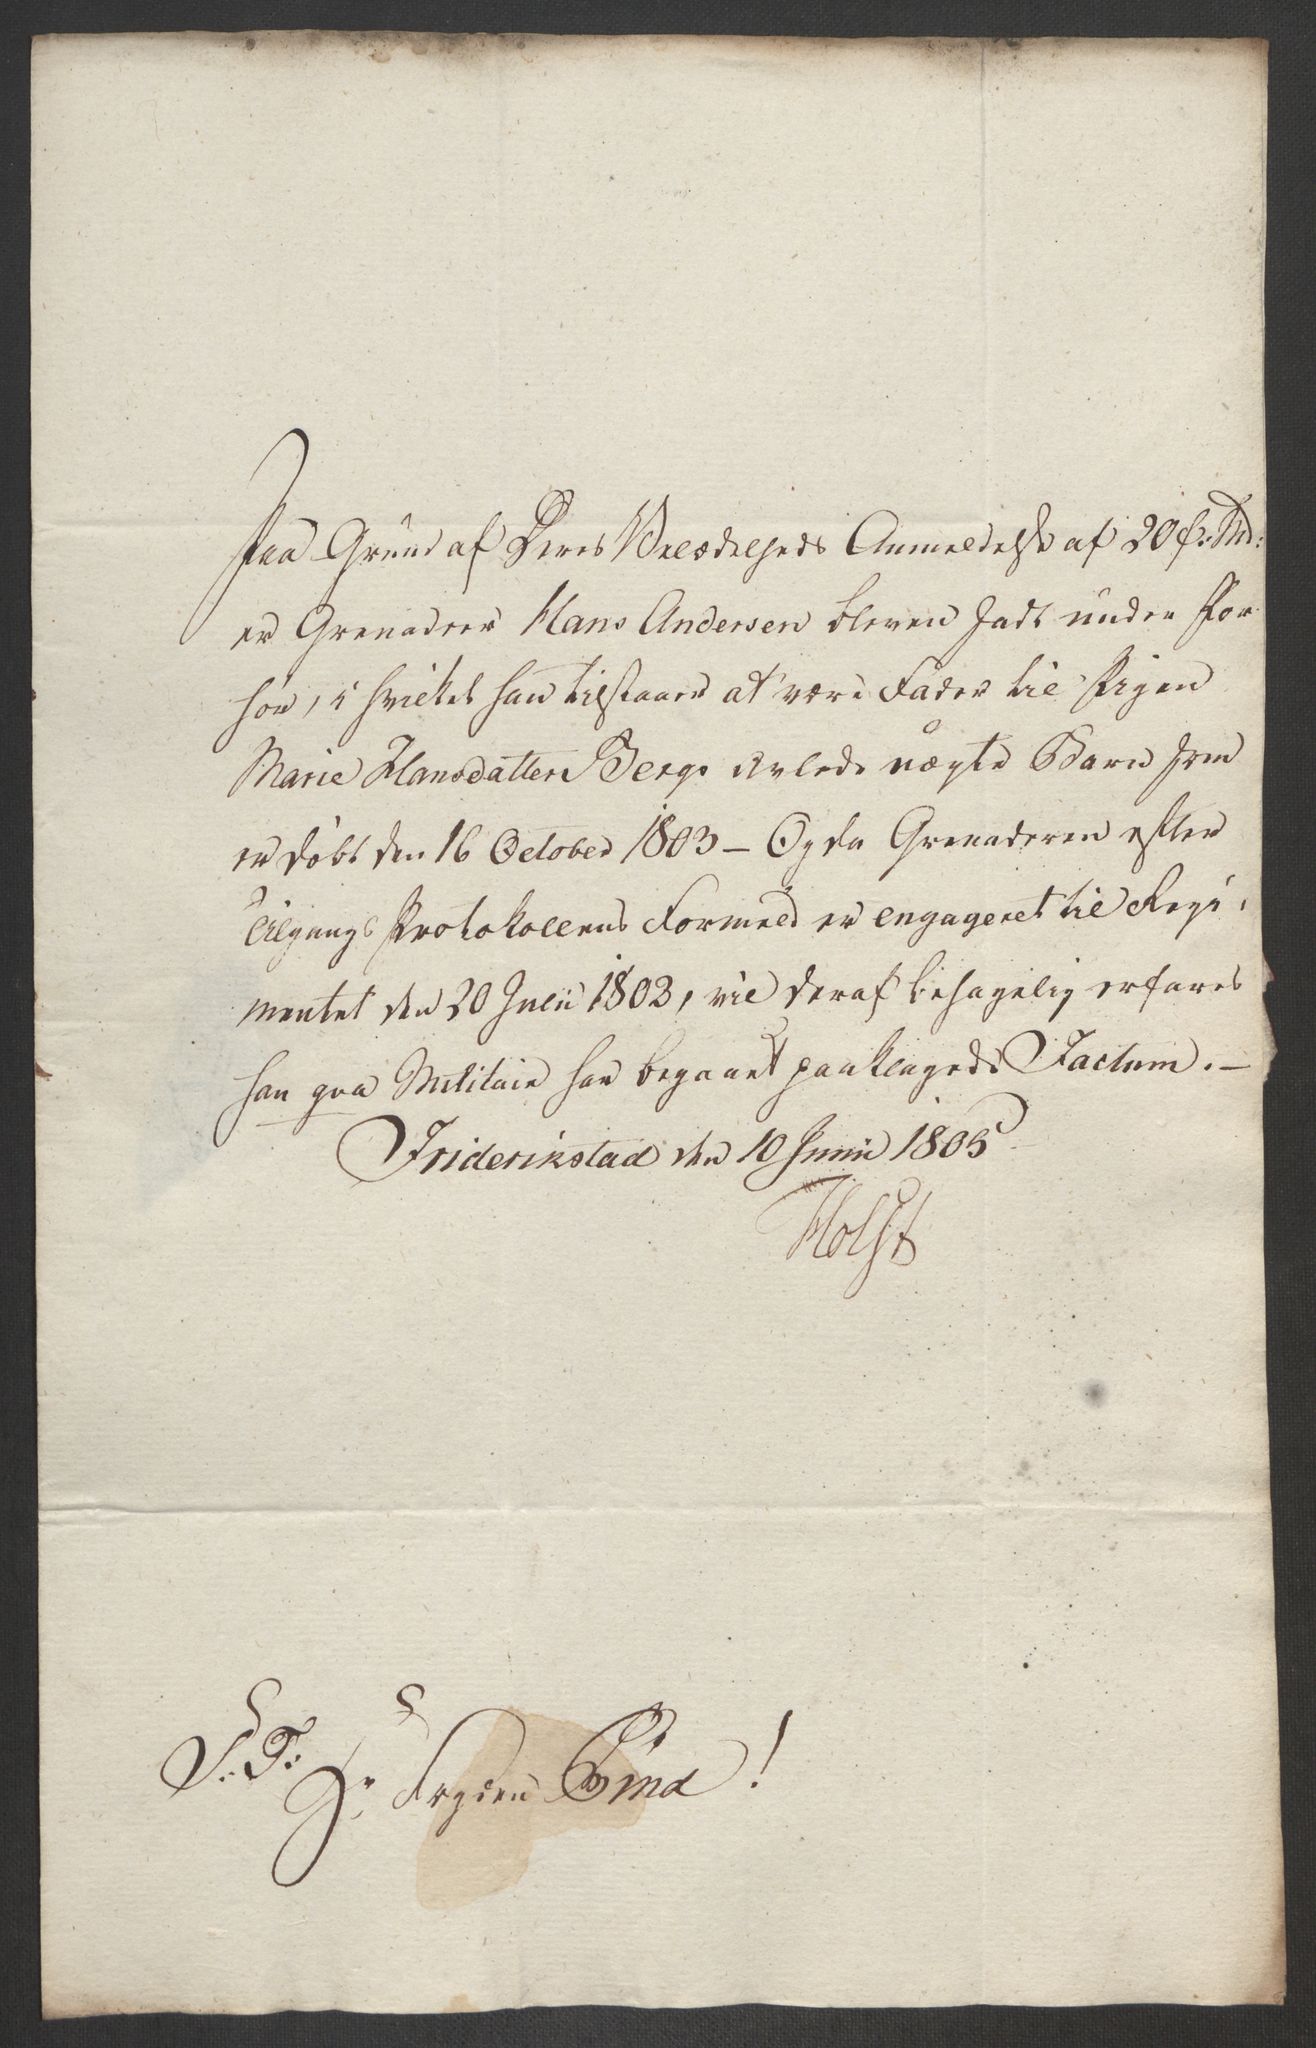 Paa Grund af Deres Velædelheds Anmeldelse af 20 f: Md:
er Grenadeer Hans Andersen bleven sadt under For
hør, i hvilket han tilstaaer at være Fader til Pigen
Marie Hansdatter Bergs avlede uægte Barn som
er døbt den 16 October 1803 – Og da Grenaderen efter
Tilgangs Protokollens Formeld er engageret til Regi:
mentet den 20 Julii 1802, vil deraf behagelig erfares
han qva Militair har begaaet paaklagede Factum. –
Friderikstad den 10 Junii 1805
Holst
S: T:
Hr. Fogden Bind!